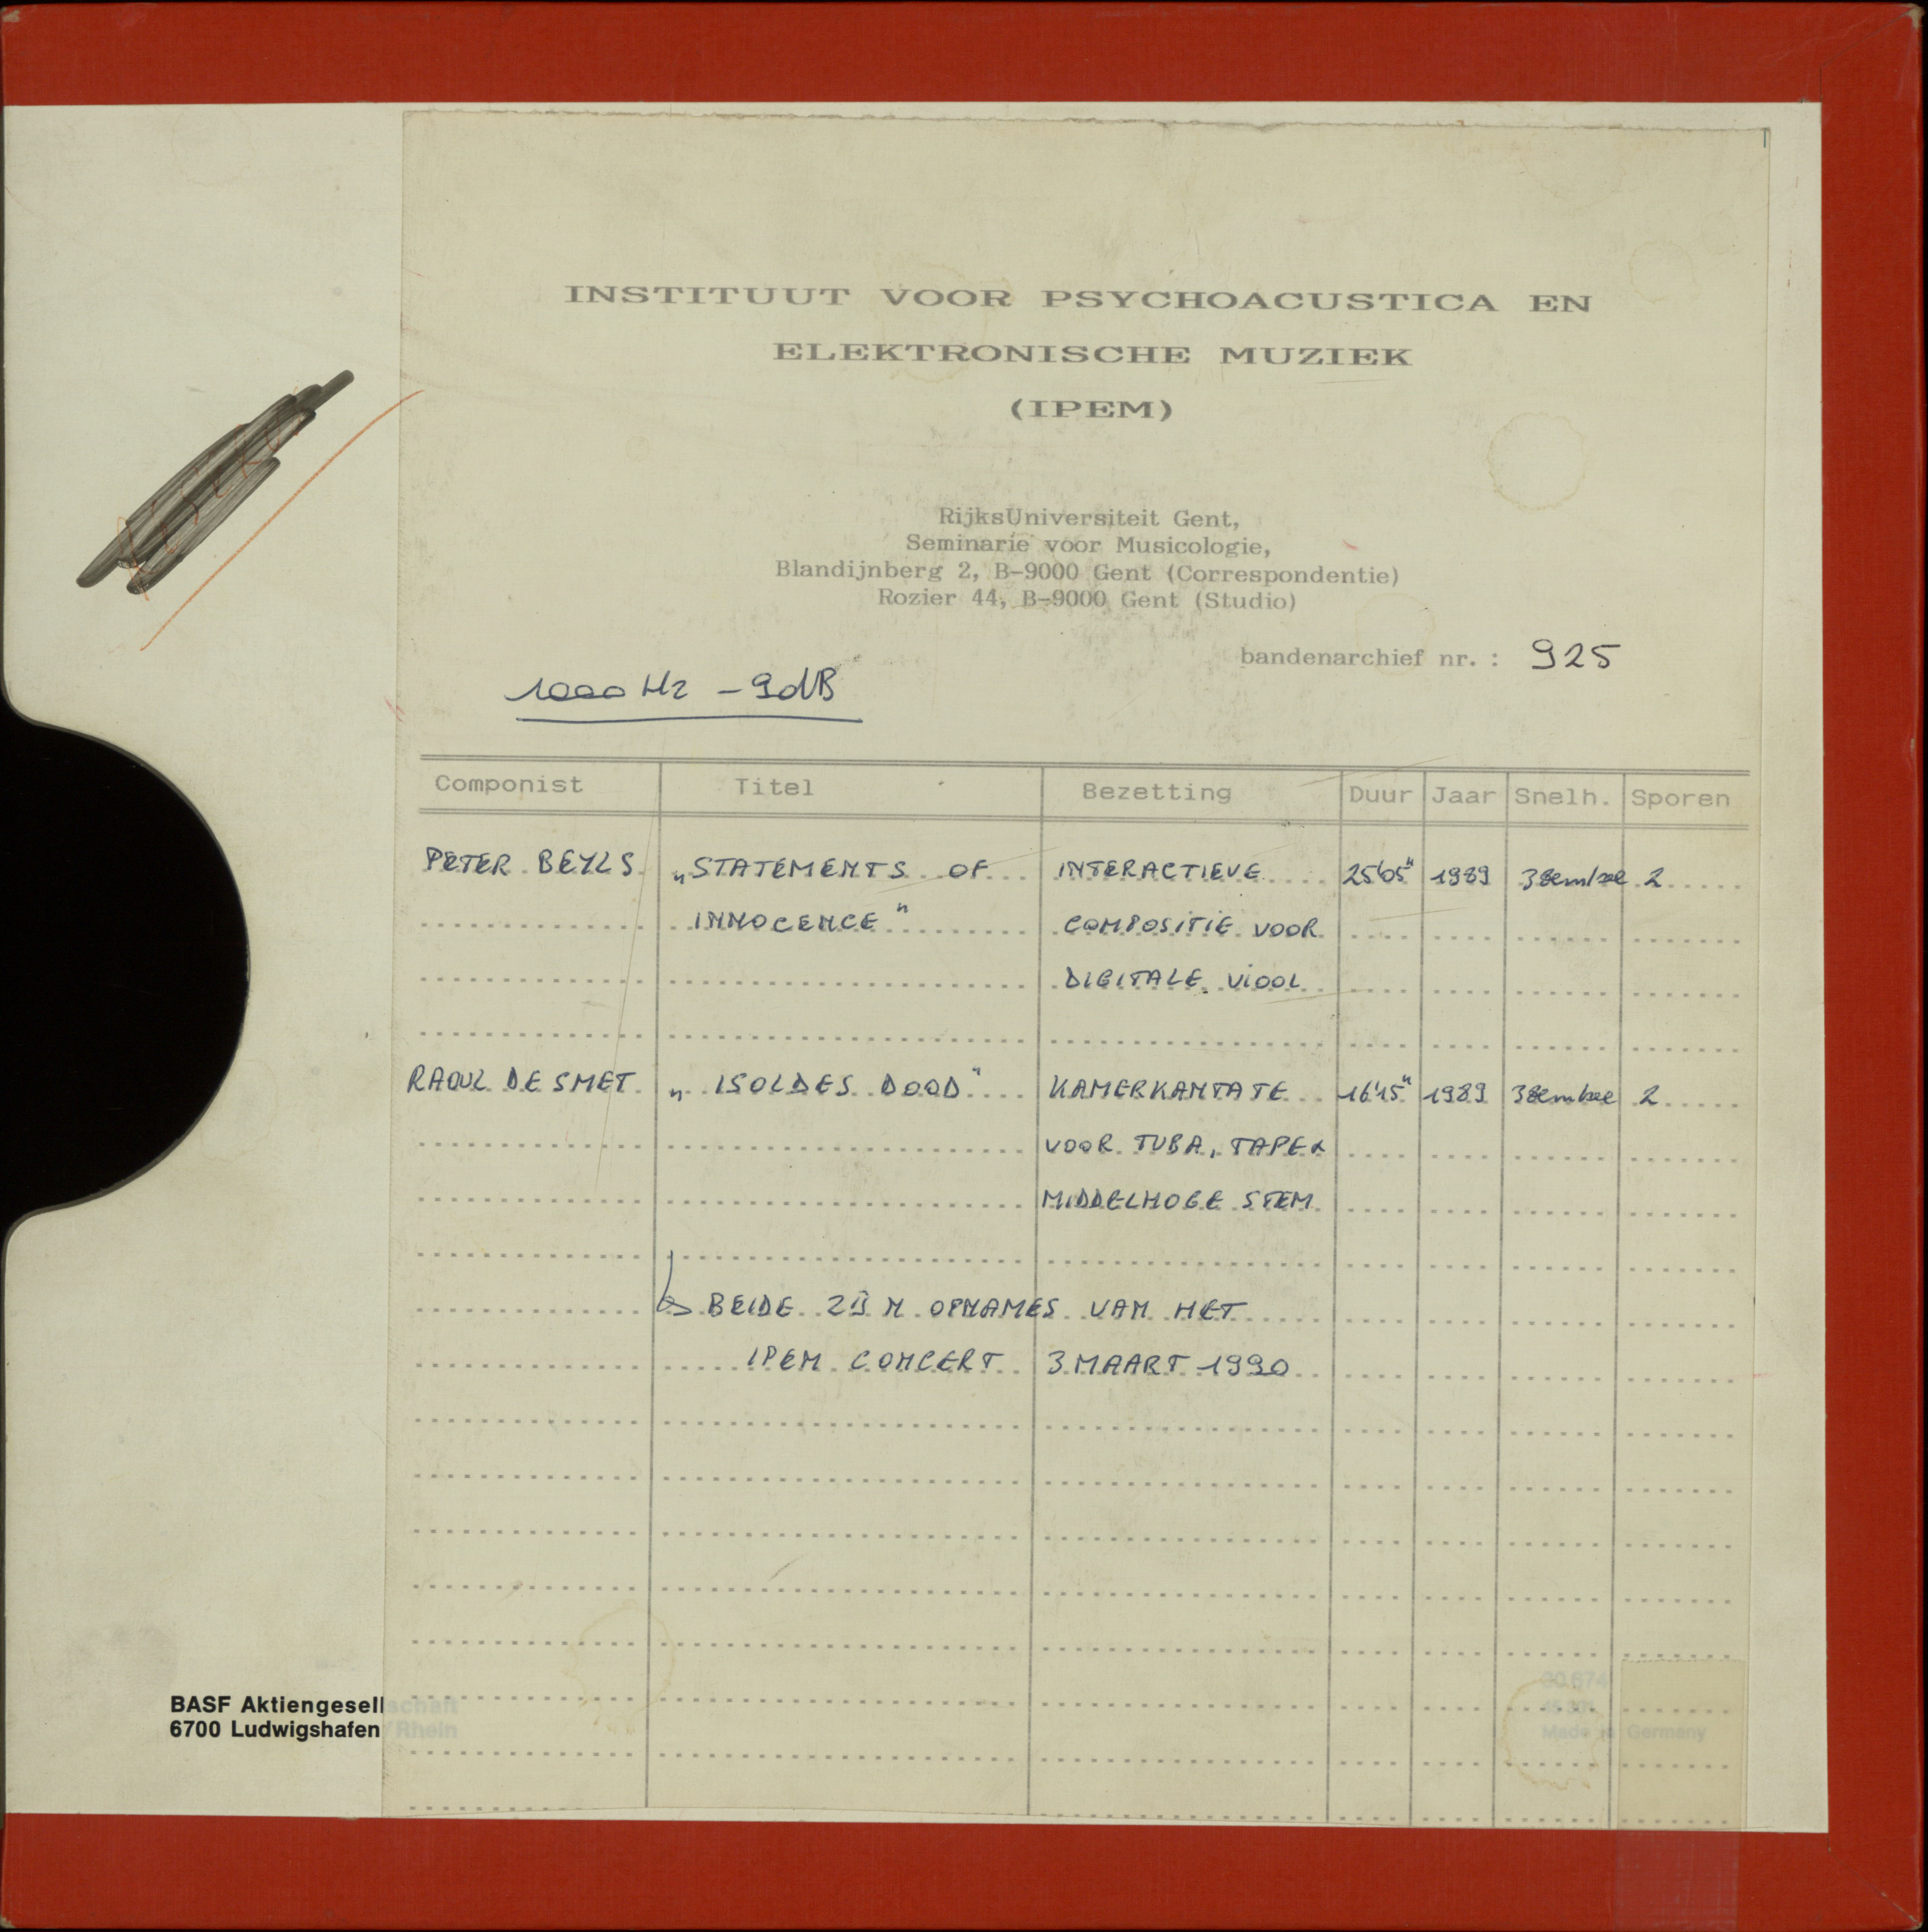 INSTITUUT VOOR PSYCHOACUSTICA EN
ELEKTRONISCHE MUZIEK
(IPEM)
RijksUniversiteit Gent,
Seminarie voor Musicologie,
Blandijnberg 2, B-9000 Gent (Correspondentie)
Rozier 44, B-9000 Gent (Studio)
bandenarchief nr. : 925
1000 Hz - 9dB
Componist Titel Bezetting Duur Jaar Snelh. Sporen
PETER BEYLS „STATEMENTS OF INTERACTIEVE 25'05" 1989 38cm/sec 2
INNOCENCE" COMPOSITIE VOOR
DIGITALE VIOOL
RAOUL DE SMET „ISOLDES DOOD" KAMERKANTATE 16'15" 1989 38cm/sec 2
VOOR TUBA, TAPE &
MIDDELHOGE STEM
BEIDE ZIJN OPNAMES VAN HET
IPEM CONCERT 3 MAART 1990
BASF Aktiengesellschaft
6700 Ludwigshafen/Rhein
Made in Germany